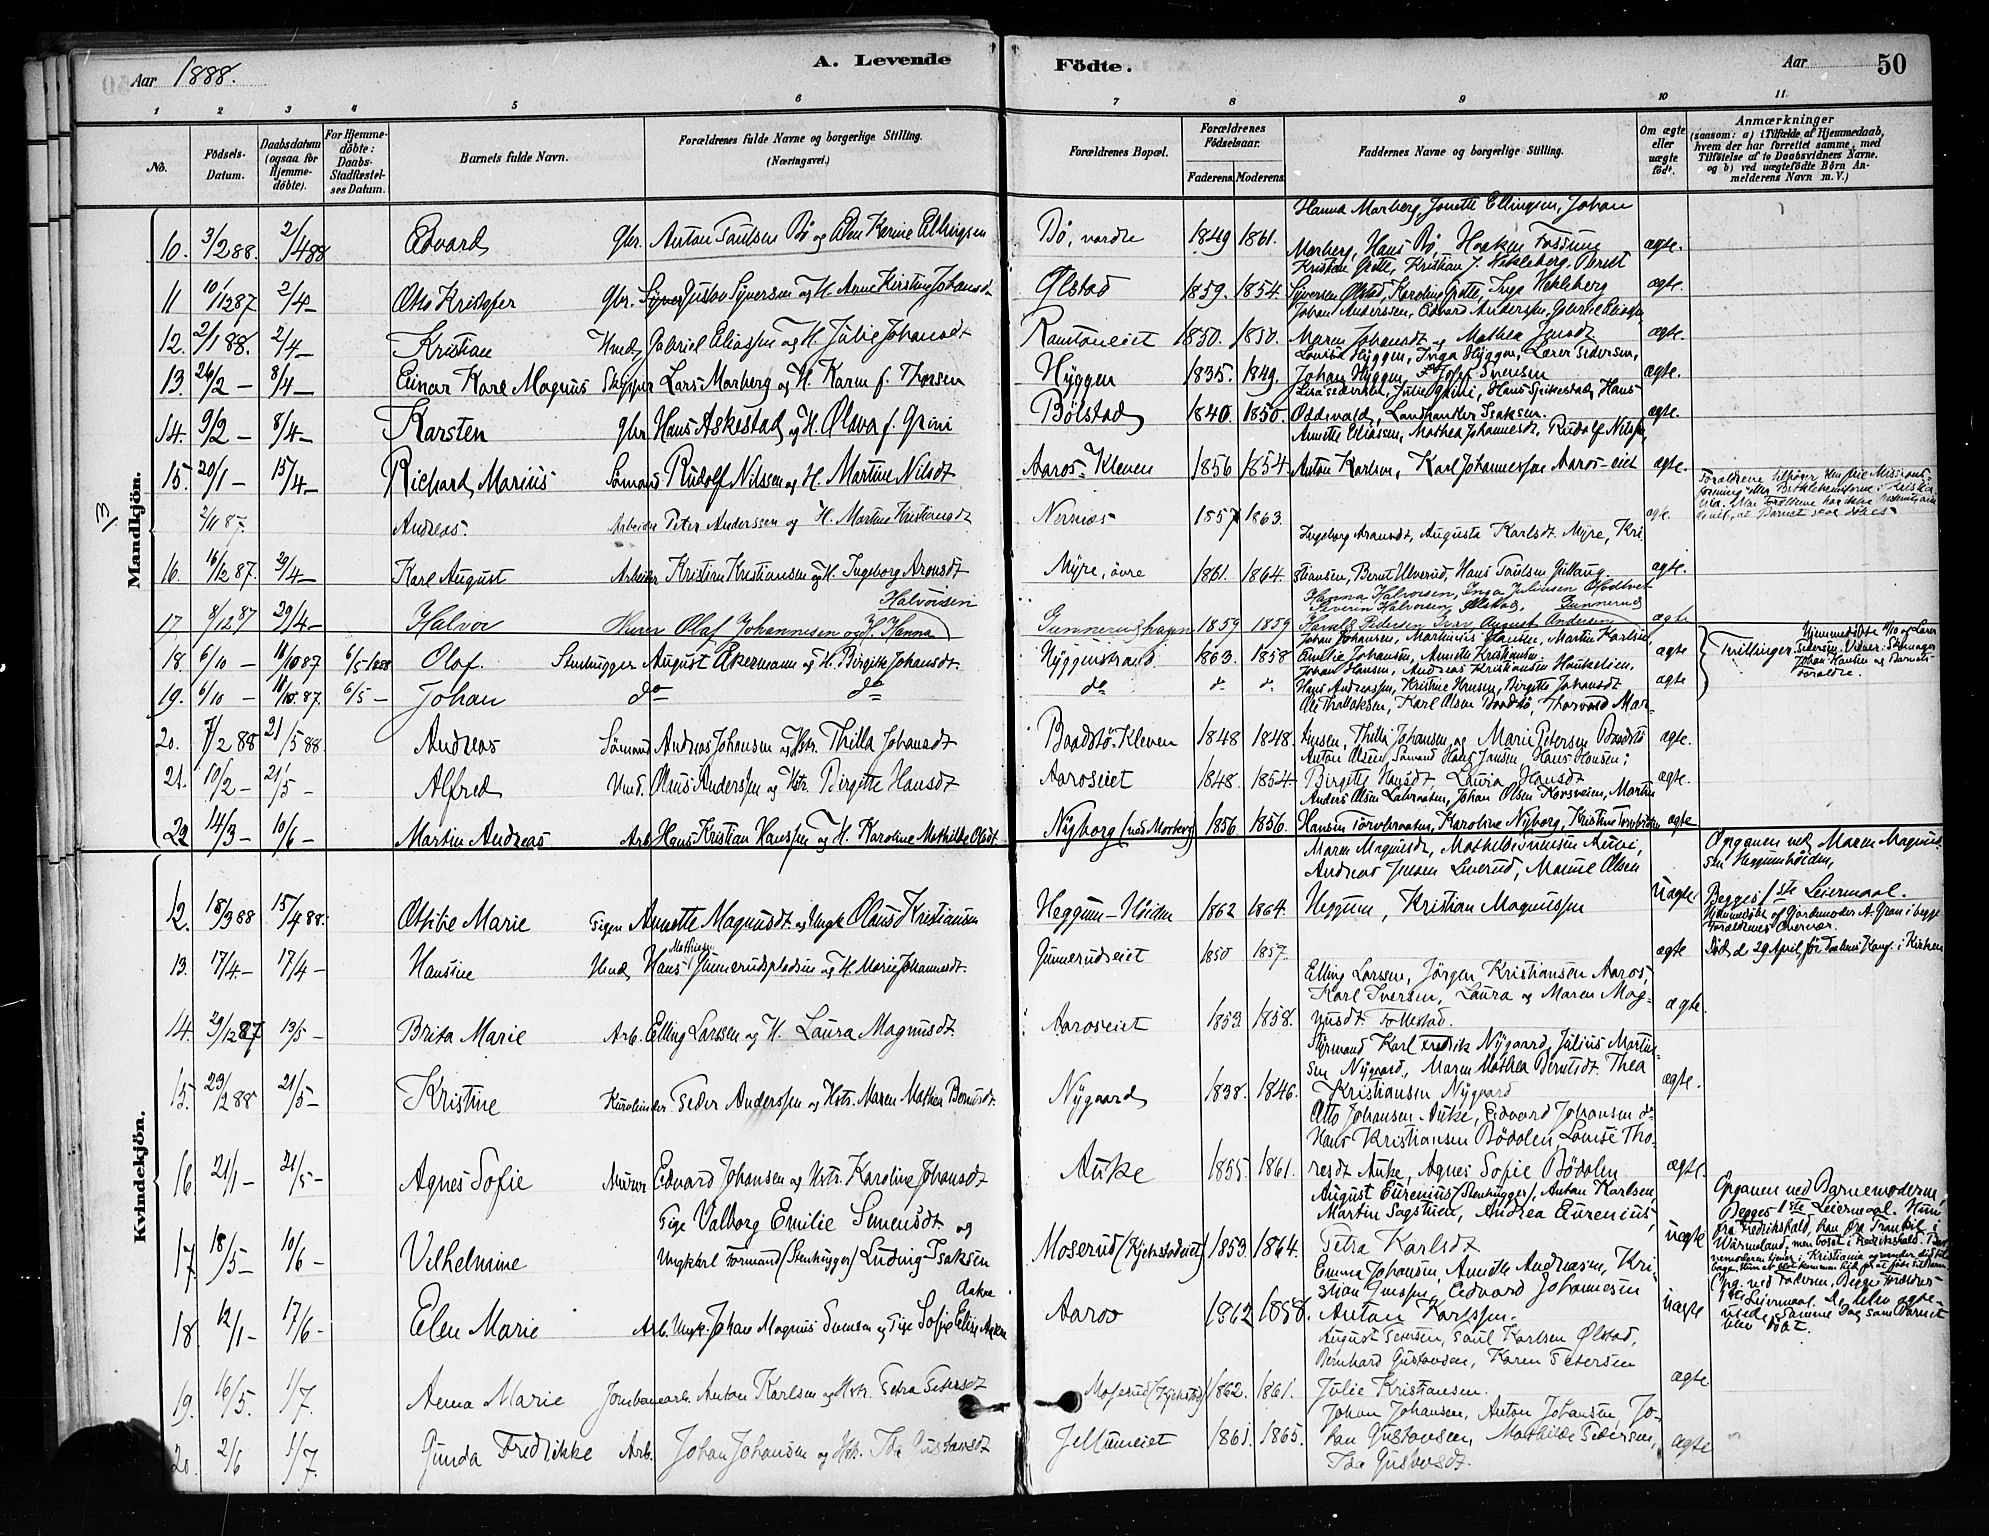 Aar 1888.
A. Levende
Födte.
Aar
50
1 2 3 4 5 6 7 8 9 10 11.
No.
Födsels-Datum.
Daabsdatum (ogsaa for Hjemme-döbte).
For Hjemme-döbte: Daabs-Stadfæstel-ses Datum.
Barnets fulde Navn.
Forældrenes fulde Navne og borgerlige Stilling. (Næringsvei.)
Forældrenes Bopæl.
Forældrenes Födselsaar.
Faderens. Moderens.
Faddernes Navne og borgerlige Stilling.
Om ægte eller uægte födt.
Anmærkninger
(saasom: a) i Tilfælde af Hjemmedaab, hvem der har forrettet samme, med Tilföielse af to Daabsvidners Navne. og b) ved uægtefödte Börn An-melderens Navn m. V.)
Mandkjön.
13
10. 3/2 88. 2/4 88 Edvard Gbr. Anton Paulsen Bö og Elen Karine Ellingsen Bö, nordre 1849 1861. Hanna Morberg, Jonette Ellingsen, Johan Morberg, Hans Bö, Haaken Fossum ægte.
11 10/12 87 2/4 – Otto Kristofer Gbr. Gustav Syversen og H. Anne Kirstine Johansdt Ølstad 1859. 1854. Kristian Grette, Kristian J. Hekleberg, Berthe Syversen Ølstad, Karoline Grette, Inga Hekleberg ægte.
12. 2/1 88. 2/4 – Kristian Hmd. Gabriel Eliassen og H. Julie Johansdt Ramtoneiet 1850. 1850. Johan Anderssen, Edvard Anderssen, Gabriel Eliassen, Maren Johansdt og Mathea Jensdt ægte.
13. 24/2 – 8/4 – Einar Karl Magnus Skipper Lars Morberg og H. Karen f. Thorsen Hyggen 1835. 1849. Louise Hyggen, Inga Hyggen, Lærer Pedersen, Johan Hyggen, Josef Svensen ægte.
14. 9/2 – 8/4 – Karsten Gbr. Hans Askestad og H. Olava f. Grini Bölstad 1840 1850. Lise Pedersen, Julie Grini, Hans Spikestad, Hans Oddevald, Landhandler Isaksen. ægte
15. 20/1 – 15/4 – Richard Marius Sömand Rudolf Nilssen og H. Martine Nilsdt Aaros-Kleven 1856 1854. Annette Eliasen, Mathea Johannesdt, Rudolf Nilssen, Anton Karlsen, Karl Johannessen Aaros-eiet ægte.
2/11 87. Andreas. Arbeider Peter Anderssen og H. Martine Kristiansdt Nernæs 1857 1863. ægte.
16. 16/12 87. 29/4 – Karl August Arbeider Kristian Kristiansen og H. Ingeborg Aronsdt Myre, övre 1861. 1864. Ingeborg Aronsdt, Augusta Karlsdt Myre, Kristiansen, Bernt Ulverud, Hans Paulsen Gullaug ægte.
17. 8/12 87 29/4 – Halvor Olaf Johannesen og H. Hanna Halvorsen Gunnerudshagen 1859 1859 Hanna Halvorsen, Inga Juliusen Severin Halvorsen Ølstad, Gunnerud Harald Pedersen August Andersen ægte
18. 6/10 – 16/10 87 6/5 1888 Olaf. Stenhugger August Akermann og H. Birgitte Johansdt. Hyggenstrand 1863. 1858 Johan Johansen, Martinius Hansen, Martin Karlsen, Emilie Johansen, Annette Kristiansen. ægte
19. 6/10 – 16/10 87. 6/5 – Johan do do do do do Johan Hansen, Andreas Kristiansen Haukelien, Hans Andreassen, Kristine Hansen, Birgitte Johansdt ægte
Tvillinger.
20. 7/2 88 21/5 88. Andreas Sömand Andreas Johansen og Hstr. Thilla Johansdt Baadstö-Kleven 1848 1848. Karl Olsen Baadstö, Thorvald Martinsen, Thilla Johansen og Marie Petersen Baadstö ægte.
21. 10/2 – 21/5 – Alfred Hmd. Olaus Anderssen og Hstr. Birgitte Hansdt Aaroseiet 1848. 1854. Anton Olsen, Sömand Hans Jansen, Hans Hansen, Birgitte Hansdt, Lauria Hansdt ægte.
22 14/3 – 10/6 – Martin Andreas Arb. Hans Kristian Hanssen og H. Karoline Mathilde Olsdt Nyborg (ved Morberg) 1856 1856. Anders Olsen, Johan Olsen Korsveien, Martin Hansen Torvbraaten, Karoline Nyborg, Kristine Torvbraaten ægte
Kvindekjön.
12. 18/3 88 15/4 88. Othilie Marie Pigen Annette Magnusdt. og Ungk. Olaus Kristiansen Heggum-Höiden 1862 1864. Maren Magnusdt, Mathilde Auke, Andreas Jensen Liverud, Manne Olsen Heggum, Kristian Magnussen uægte. Opgaven ved Maren Magnussen Heggumhöiden, Begges 1ste Leiermaal.
13. 17/4 – 17/4 – Hansine Hmd. Hans Mathisen Gunnerudspladsen og H. Marie Johannesdt. Gunnerudseiet 1850 1857. ægte Hjemmedöbt af Gjordemoder A. Gran i begge Forældrenes Overvær. Död d. 29 April, för Daabens Konf. i Kirken
14. 29/12 87 13/5 – Brita Marie Arb. Elling Larssen og H. Laura Magnusdt. Aaroseiet 1853. 1858. Elling Larssen, Jörgen Kristiansen Aaros, Karl Iversen, Laura og Maren Magnusdt. Tollestad. ægte.
15. 29/2 88 21/5 – Kristine Kurvbinder Peder Anderssen og Hstr. Maren Mathea Berntsdt. Nygaard 1838. 1846. Styrmand Karl Fredrik Nygaard, Julius Martinsen Nygaard, Maren Mathea Berntsdt. Thea Kristiansen Nygaard ægte.
16. 21/1 – 21/5 – Agnes Sofie Murer Edvard Johansen og Hstr. Karoline Johansdt Auke 1855 1861. Otto Johansen Auke, Edvard Johansen do Hans Kristiansen Bödalen, Louise Thoresdt Auke, Agnes Sofie Bödalen ægte.
17. 18/5 – 10/6 – Vilhelmine Pige Valborg Emilie Simensdt og Ungkarl (Stenhugger) Ludvig Isaksen Moserud (Kjekstadeiet) 1853. 1864. August Eurenius (Stenhugger), Anton Karlsen, Martin Sagstuen, Andrea Eurenius, Petra Karlsdt uægte Opgaven ved Barnemoderen, Begges 1ste Leiermaal. Hun fra Fredrikshald, han fra Trankil i Wärmeland, men boset i Fredrikshald.
18. 12/1 – 17/6 – Elen Marie Arb. Ungk. Johan Magnus Svensen og Pige Sofie Elise Aakre Aaros 1862 1858. Emma Johansen, Annette Andreasen, Kristian Jenssen, Edvard Johannesen Anton Karlssen. uægte Opg. ved Faderen, Begge Forældres 1ste Leiermaal. De blev ægteviede samme Dag som Barnet blev döbt.
19. 16/5. 1/7. Anna Marie Jernbanearb. Anton Karlsen og Hstr. Petra Petersdt Moserud (Kjekstad) 1862. 1861. August Petersen, Paul Karlsen Ølstad, Bernhard Gustavsen, Karen Petersen Julie Kristiansen. ægte
20. 2/6 1/7. Gunda Fredrikke Arb. Johan Johansen og Hstr. Ida Gustavsdt Jellumeiet 1861. 1865. Johan Johansen, Anton Johansen, Johan Gustavsen, Mathilde Pedersen, Ida Gustavsdt. ægte